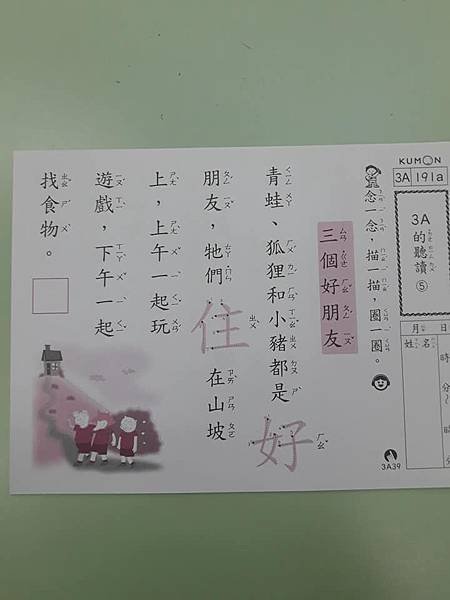 KUMON
3A 191a
3A
的聽讀
⑤
月 日
姓名
時 分～ 時 分
念一念，描一描，圈一圈。
三個好朋友
青蛙、狐狸和小豬都是好
朋友，牠們住在山坡
上，上午一起玩
遊戲，下午一起
找食物。
3A39